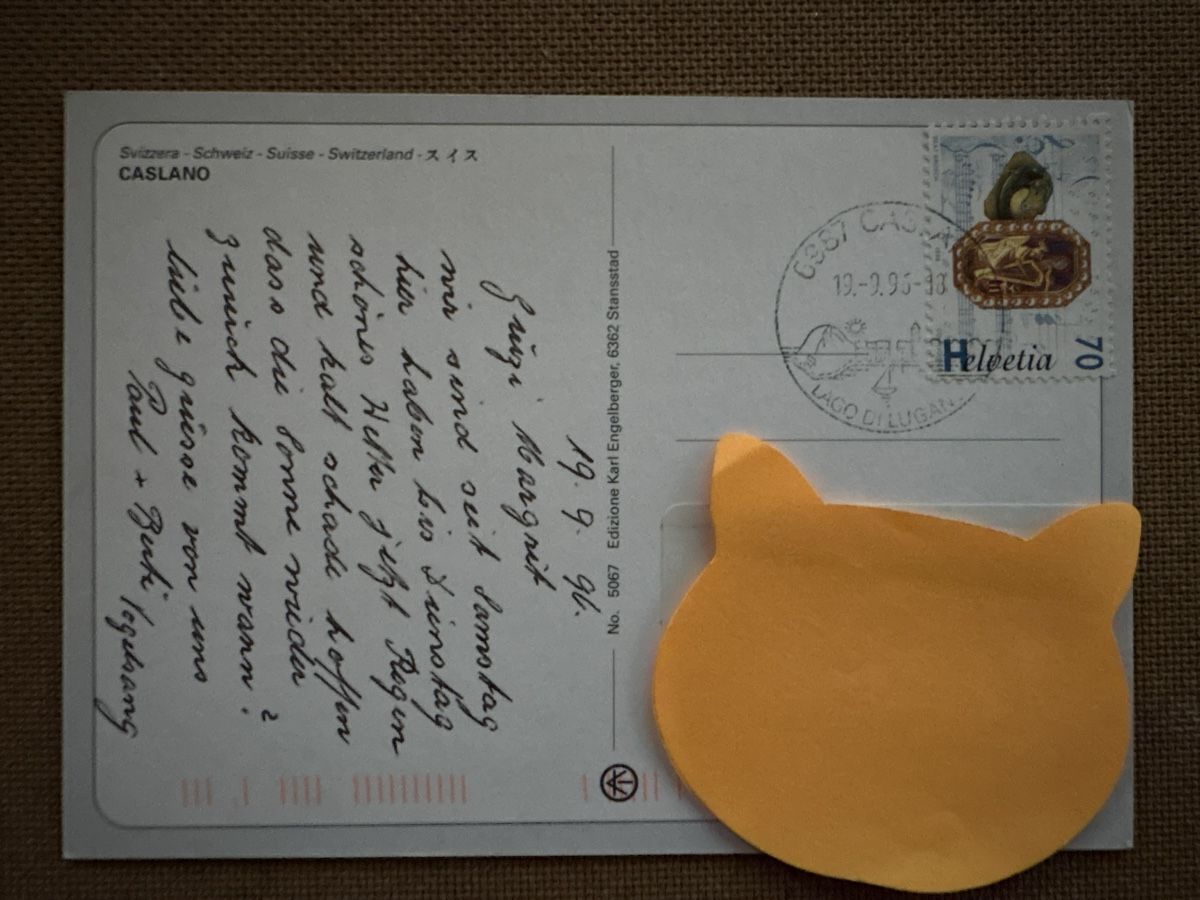 Svizzera - Schweiz - Suisse - Switzerland - スイス
CASLANO
19. 9. 96.
Grüzi Margrit
wir sind seit Samstag
hier haben bis Dinstag
schönes Wetter jetzt Regen
und kalt schade hoffen
dass die Sonne wieder
zurück kommt wann?
liebe grüsse von uns
Paul + Berti Vogelsang
No. 5067 Edizione Karl Engelberger, 6362 Stansstad
6987 CASLA
19.-9.96-18
LAGO DI LUGAN
Helvetia
70